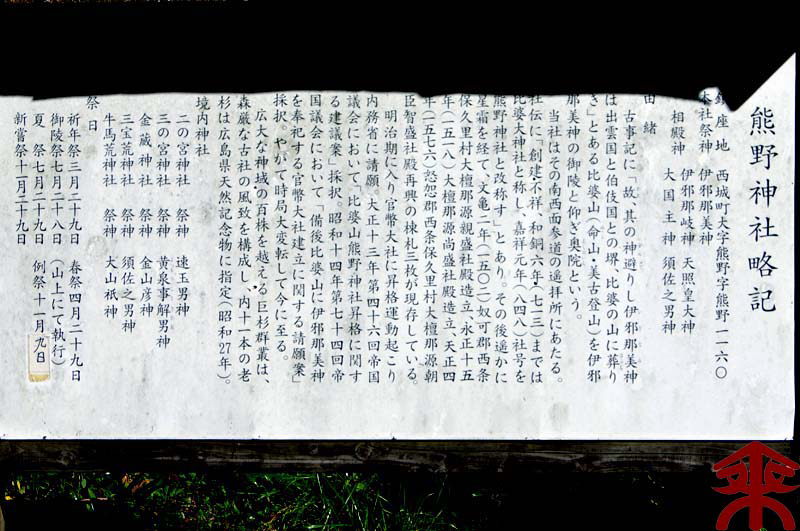 熊野神社略記
鎮座地　西城町大字熊野字熊野一一六〇
本社祭神　伊邪那美神
相殿神　伊邪那岐神　天照皇大神
大国主神　須佐之男神
由緒
古事記に「故、其の神避りし伊邪那美神
は出雲国と伯伎国との堺、比婆の山に葬り
き」とある比婆山（命山・美古登山）を伊邪
那美神の御陵と仰ぎ奥院という。
当社はその南西面参道の遥拝所にあたる。
社伝に「創建不祥、和銅六年（七一三）までは
比婆大神社と称し、嘉祥元年（八四八）社号を
熊野神社と改称す」とあり。その後遥かに
星霜を経て、文亀二年（一五〇二）奴可郡西条
保久里村大檀那源親盛社殿造立、永正十五
年（一五一八）大檀那源尚盛社殿造立、天正四
年（一五七六）怒怨郡西条保久里村大檀那源朝
臣智盛社殿再興の棟札三枚が現存している。
明治期に入り官幣大社に昇格運動起こり
内務省に請願、大正十三年第四十六回帝国
議会において、「比婆山熊野神社昇格に関す
る建議案」採択。昭和十四年第七十四回帝
国議会において「備後比婆山に伊邪那美神
を奉祀する官幣大社建立に関する請願案」
採択。やがて時局大変転して今に至る。
広大な神域の百株を越える巨杉群叢は、
森厳な古社の風致を構成し、内十一本の老
杉は広島県天然記念物に指定（昭和27年）。
境内神社
二の宮神社　祭神　速玉男神
三の宮神社　祭神　黄泉事解男神
金蔵神社　祭神　金山彦神
三宝荒神社　祭神　須佐之男神
牛馬荒神社　祭神　大山祇神
祭日
祈年祭三月二十九日　春祭四月二十九日
御陵祭七月二十八日（山上にて執行）
夏祭七月二十九日　例祭十一月九日
新嘗祭十一月二十九日